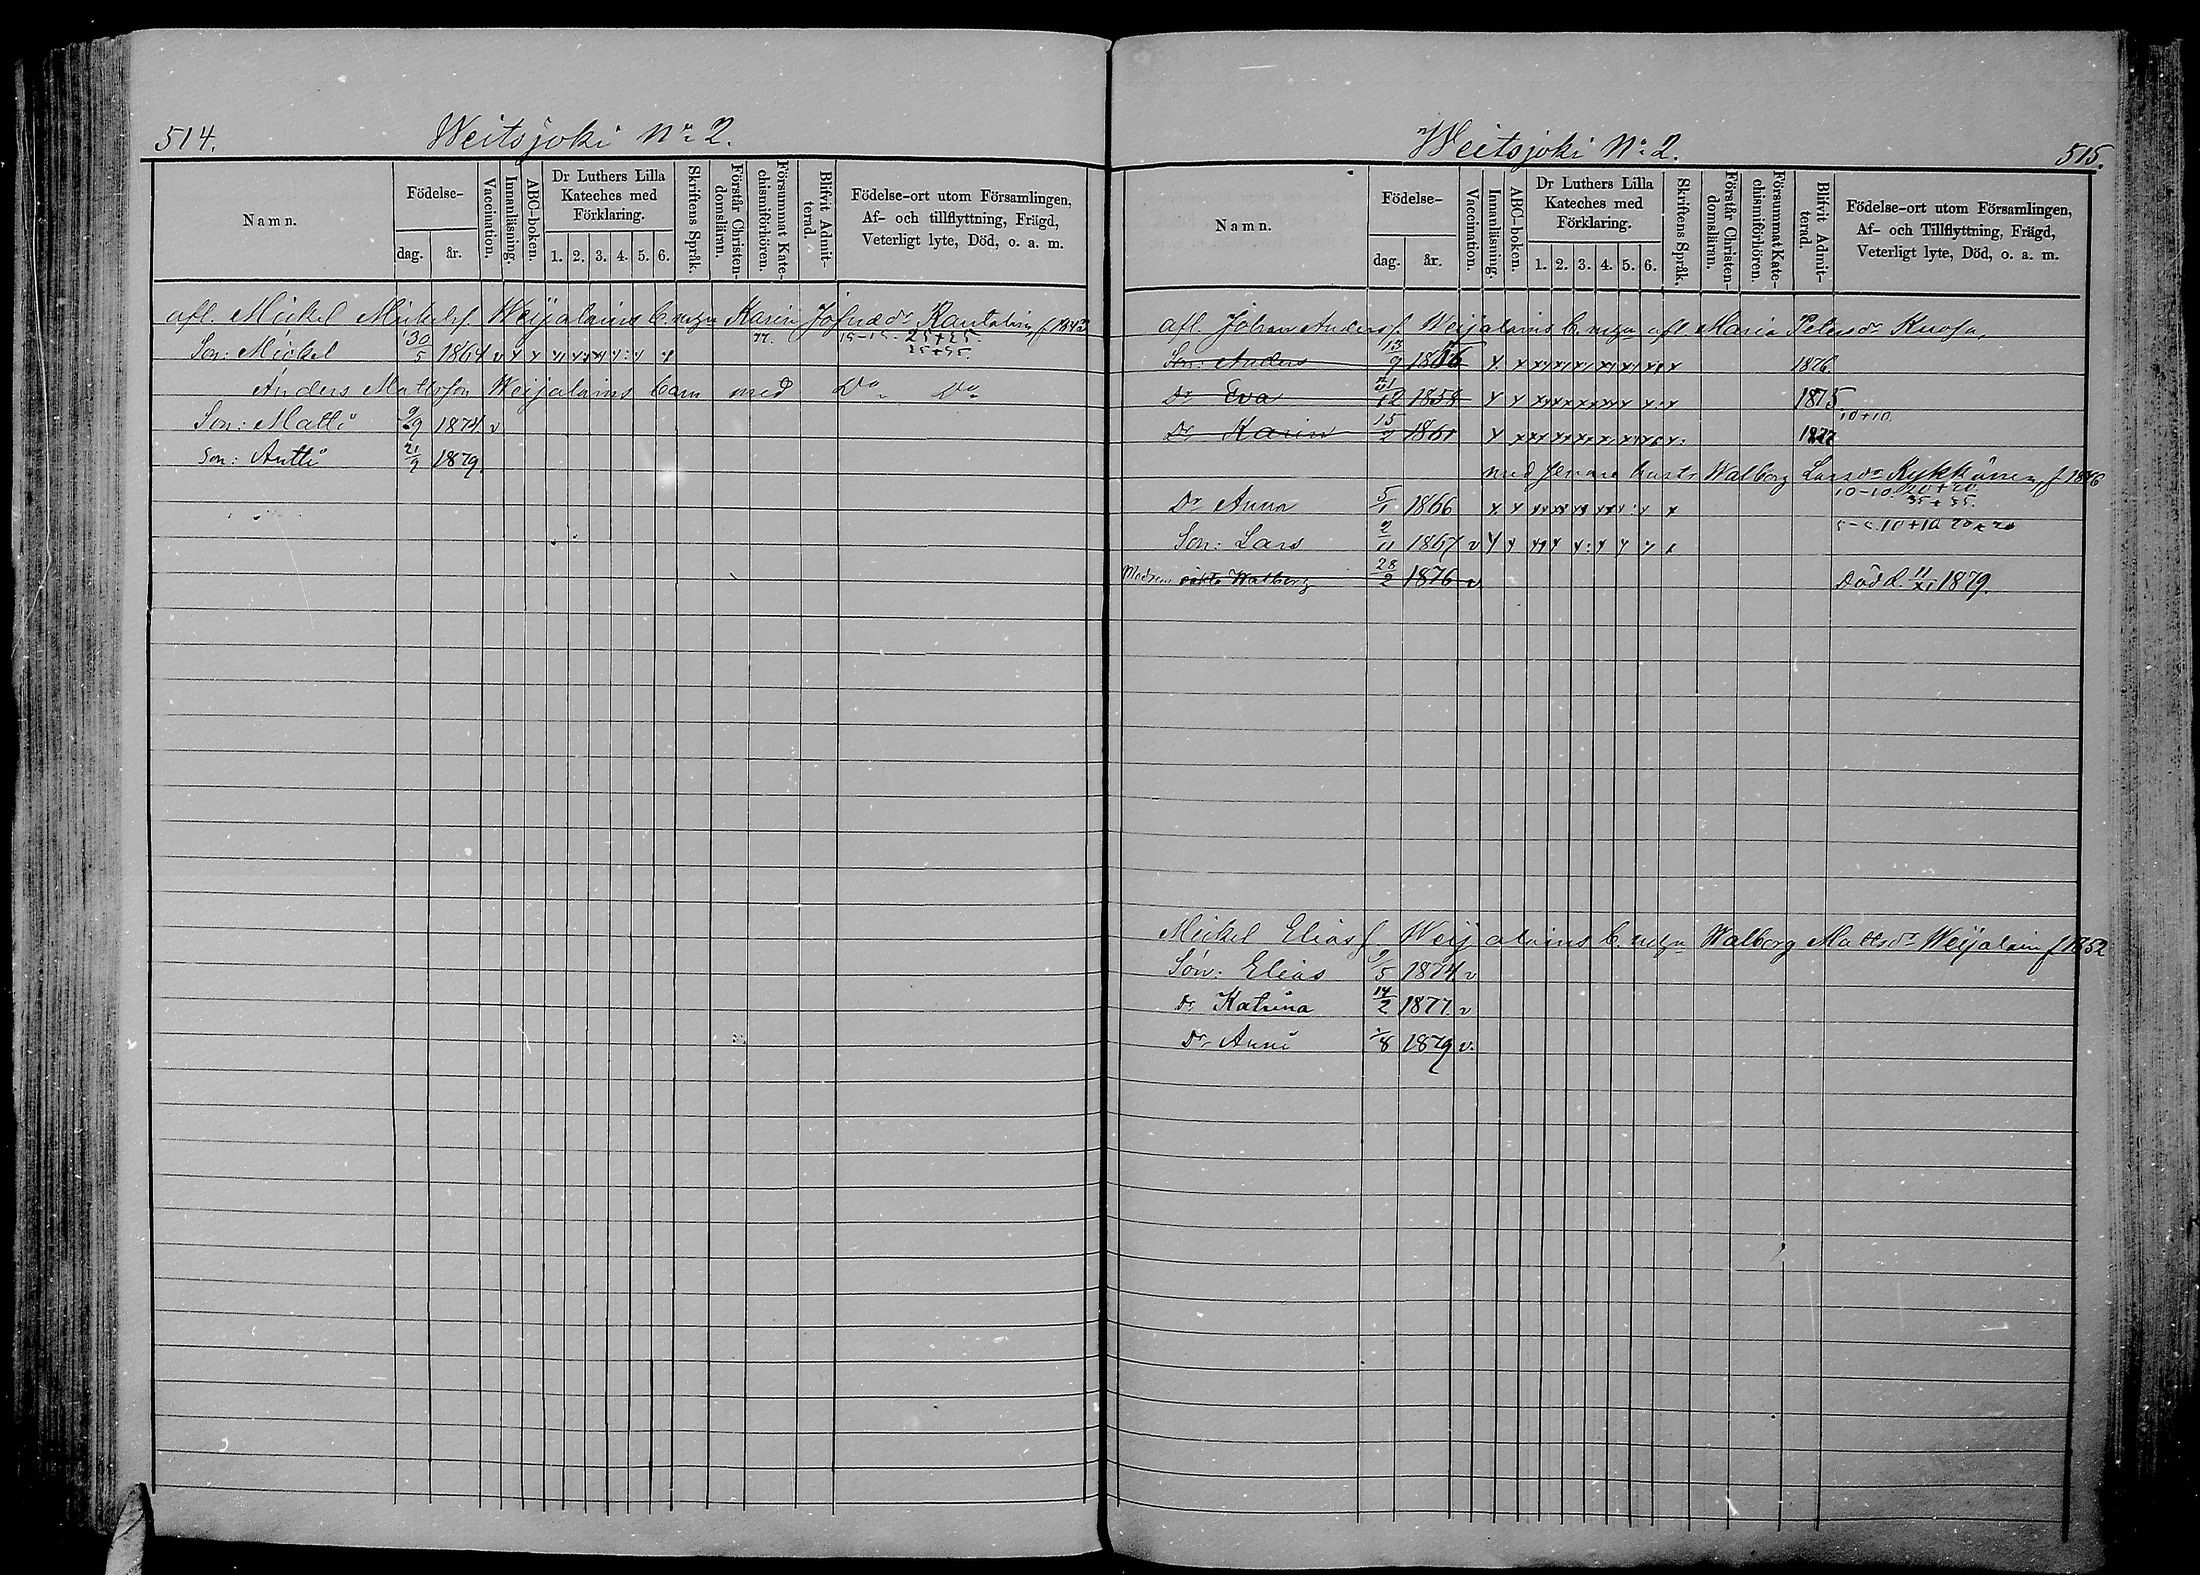 514. Weitsjoki No 2.
Namn. Födelse- dag. år. Vaccination. Innanläsning. ABC-boken. Dr Luthers Lilla Kateches med Förklaring. 1. 2. 3. 4. 5. 6. Skriftens Språk. Förstår Christendomsläran. Försummat Katechismiförhören. Blifvit Admitterad. Födelse-ort utom Församlingen, Af- och tillflyttning, Frägd, Veterligt lyte, Död, o. a. m.
afl. Mickel Mickelss. Weijalains b. med Karin Josuæ dr Rantalain f. 1842
Son: Mickel 30/5 1864 v 77. 15-15. 25+25. 35+35.
Anders Mattsson Weijalains barn med Do Do
Son: Matti 9/9 1874 v
Son: Antti 21/9 1879.
Weitsjoki No 2. 515.
Namn. Födelse- dag. år. Vaccination. Innanläsning. ABC-boken. Dr Luthers Lilla Kateches med Förklaring. 1. 2. 3. 4. 5. 6. Skriftens Språk. Förstår Christendomsläran. Försummat Katechismiförhören. Blifvit Admitterad. Födelse-ort utom Församlingen, Af- och Tillflyttning, Frägd, Veterligt lyte, Död, o. a. m.
afl. Johan Anderss. Weijalains b. med afl. Maria Petersdr
Son: Anders 13/9 1856 1876.
Dr Eva 12 1858 1875
Dr Karin 15/2 1861 1877 10+10.
med senare hustr. Walborg Larsdr Kykkänen, f. 1846
Dr Anna 5/1 1866 10-10. 20+20. 35+35.
Son: Lars 2/11 1867 v 5-5. 10+10. 20+20
Modrens oäkta Walborg 28/2 1876 v Död d. 11/XI 1879.
Mickel Eliass. Weijalains b. med Walborg Mattsdr Weijalain f. 1852
Son: Elias 9/5 1874 v
Dr Katrina 14/2 1877. v
Dr Anni 1/8 1879 v.